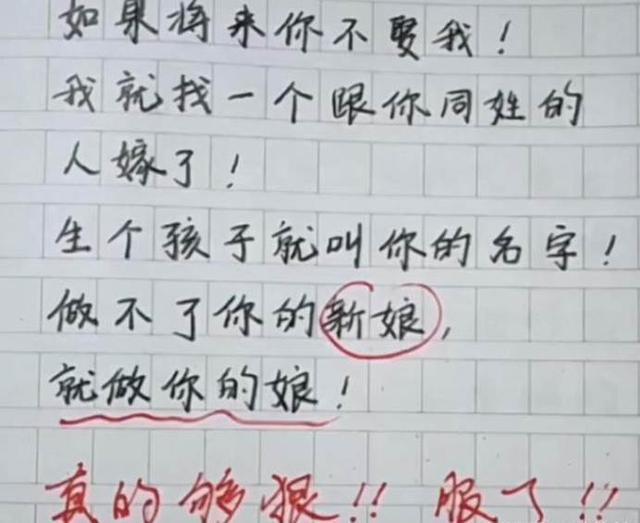 如果将来你不娶我！
我就找一个跟你同姓的
人嫁了！
生个孩子就叫你的名字！
做不了你的新娘，
就做你的娘！
真的够狠!! 服了!!